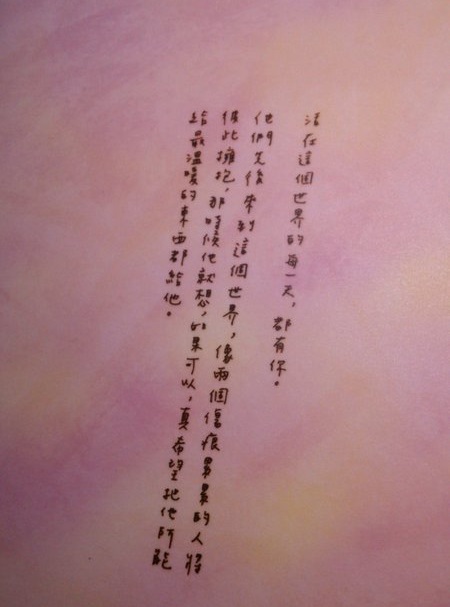 活在這個世界的每一天，都有你。
他們先後來到這個世界，像兩個傷痕累累的人將
彼此擁抱，那時候他就想，如果可以，真希望把他所能
給最溫暖的東西都給他。